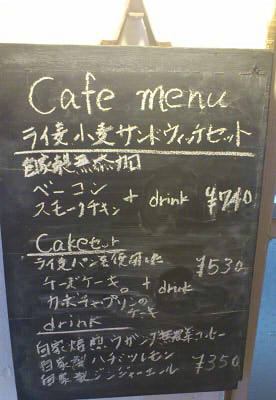 Cafe menu
ライ麦小麦サンドウィッチセット
自家製無添加
ベーコン
スモークチキン + drink ¥740
Cakeセット
ライ麦パンを使用した ¥530
チーズケーキ。 + drink
カボチャプリンの
ケーキ
drink
自家焙煎ウガンダ無農薬コーヒー
自家製ハチミツレモン ¥350
自家製ジンジャーエール